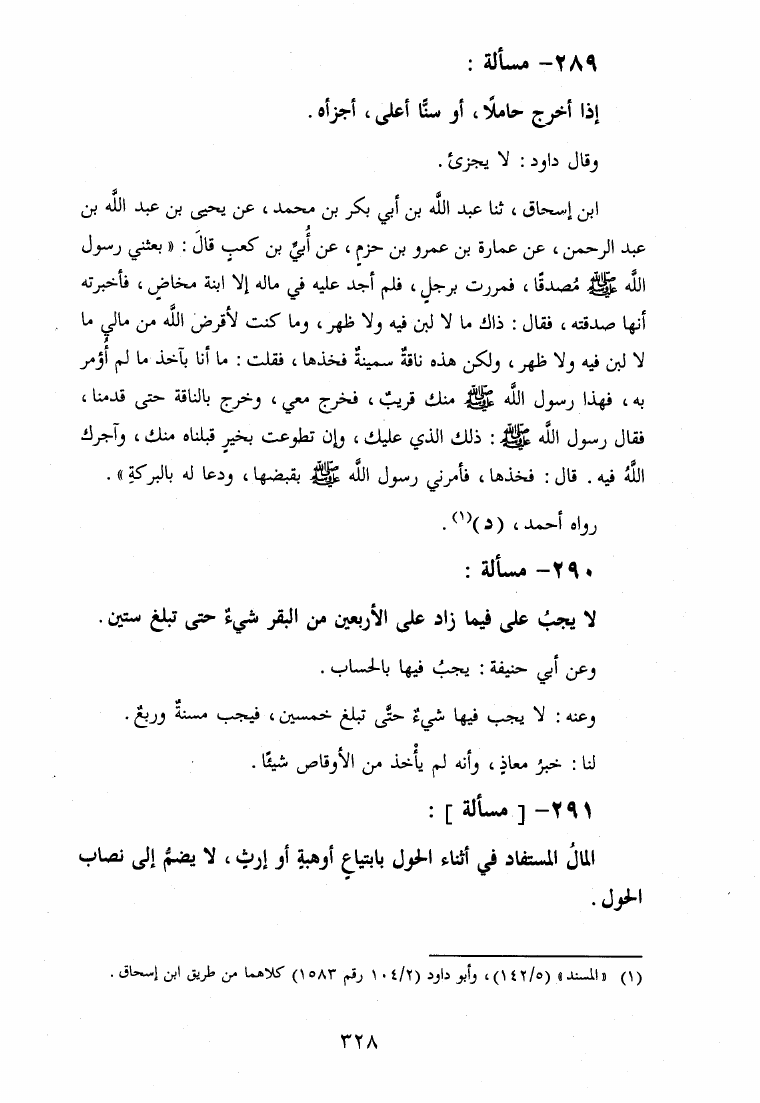 ٢٨٩- مسألة :
إذا أخرج حاملًا ، أو سنًّا أعلى ، أجزأه .
وقال داود : لا يجزئ .
ابن إسحاق ، ثنا عبد اللَّه بن أبي بكر بن محمد ، عن يحيى بن عبد اللَّه بن
عبد الرحمن ، عن عمارة بن عمرو بن حزمٍ ، عن أُبيِّ بن كعبٍ قالَ : « بعثني رسول
اللَّه ﷺ مُصدقًا ، فمررت برجلٍ ، فلم أجد عليه في ماله إلا ابنة مخاضٍ ، فأخبرته
أنها صدقته ، فقال : ذاك ما لا لبن فيه ولا ظهر ، وما كنت لأقرض اللَّه من مالي ما
لا لبن فيه ولا ظهر ، ولكن هذه ناقةٌ سمينةٌ فخذها ، فقلت : ما أنا بآخذ ما لم أُؤمر
به ، فهذا رسول اللَّه ﷺ منك قريبٌ ، فخرج معي ، وخرج بالناقة حتى قدمنا ،
فقال رسول اللَّه ﷺ : ذلك الذي عليك ، وإن تطوعت بخيرٍ قبلناه منك ، وآجرك
اللَّهُ فيه . قال : فخذها ، فأمرني رسول اللَّه ﷺ بقبضها ، ودعا له بالبركةِ » .
رواه أحمد ، ( د )(١) .
٢٩٠- مسألة :
لا يجبُ على فيما زاد على الأربعين من البقر شيءٌ حتى تبلغ ستين .
وعن أبي حنيفة : يجبُ فيها بالحساب .
وعنه : لا يجب فيها شيءٌ حتَّى تبلغ خمسين ، فيجب مسنةٌ وربعٌ .
لنا : خبرُ معاذٍ ، وأنه لم يأْخذ من الأوقاص شيئًا .
٢٩١- [ مسألة ] :
المالُ المستفاد في أثناء الحول بابتياعٍ أوهبةٍ أو إرثٍ ، لا يضمُّ إلى نصاب
الحول .
(١) «المسند» (١٤٢/٥) ، وأبو داود (١٠٤/٢ رقم ١٥٨٣) كلاهما من طريق ابن إسحاق .
٣٢٨